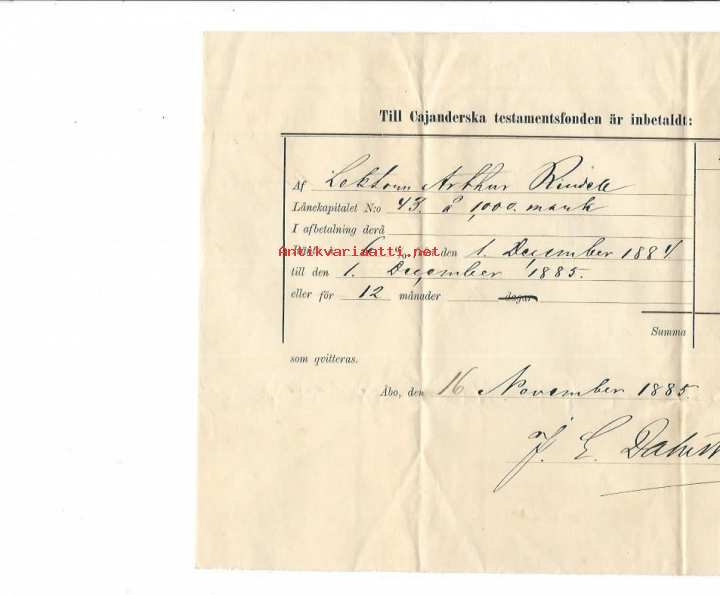 Till Cajanderska testamentsfonden är inbetaldt:
Af Lektorn Arthur Rindell
Lånekapitalet N:o 43. à 1,000. mark
I afbetalning derå
Antikvariaatti.net
6 % den 1. December 1884
till den 1. December 1885.
eller för 12 månader dagar
Summa
som qvitteras.
Åbo, den 16 November 1885.
J. E. Dahlst